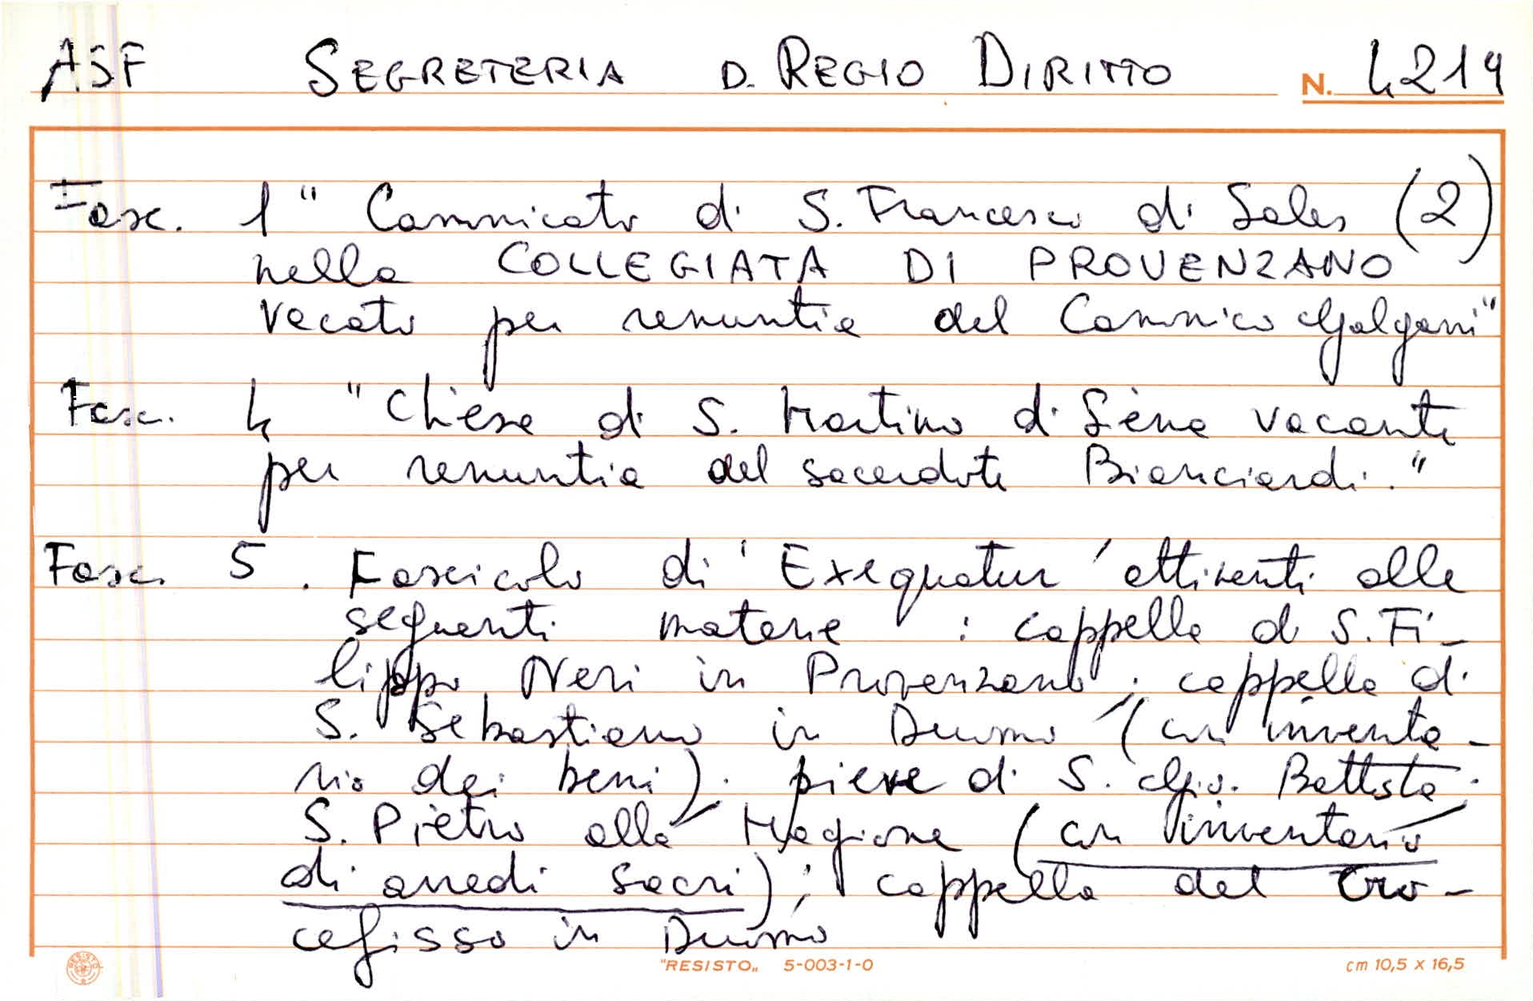 ASF SEGRETERIA D. REGIO DIRITTO N. 4214
Fasc. 1 " Canonicato di S. Francesco di Sales (2)
nella COLLEGIATA DI PROVENZANO
vacato per renuntia del Canonico Galgani"
Fasc. 4 "Chiesa di S. Martino di Siena vacante
per renuntia del sacerdote Bianciardi."
Fasc. 5. Fascicolo di 'Exequatur' attinenti alle
seguenti materie : cappella di S. Fi-
lippo Neri in Provenzano; cappella di
S. Sebastiano in Duomo (con inventa-
rio dei beni); pieve di S. Gio. Battista;
S. Pietro alla Magione (con inventario
di arredi sacri); cappella del Cro-
cefisso in Duomo
RESISTO "RESISTO„ 5-003-1-0 cm 10,5 x 16,5